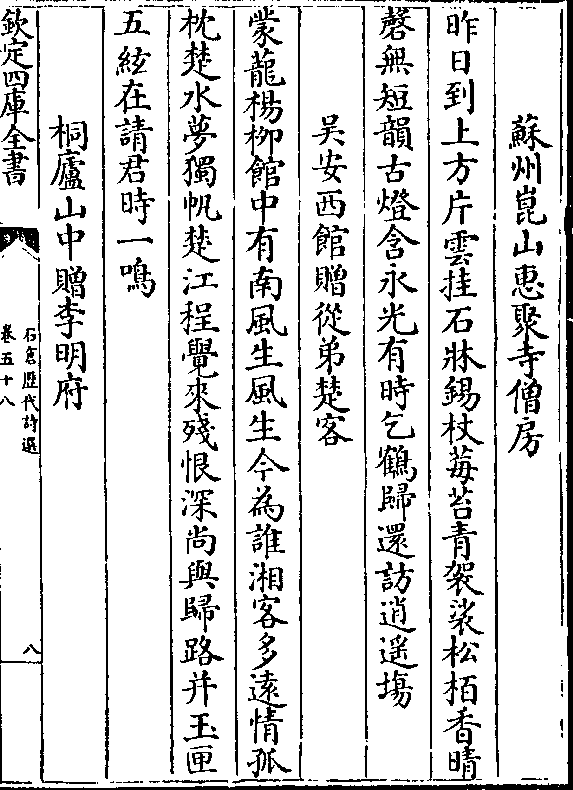 蘇州崑山惠聚寺僧房
昨日到上方片雲挂石牀錫杖莓苔青袈裟松栢香晴
磬無短韻古燈含永光有時乞鶴歸還訪逍遥塲
吴安西館贈從弟楚客
蒙龍楊柳館中有南風生風生今為誰湘客多遠情孤
枕楚水夢獨帆楚江程覺來殘恨深尚與歸路并玉匣
五絃在請君時一鳴
桐廬山中贈李明府
欽定四庫全書
石倉歴代詩選
卷五十八
八